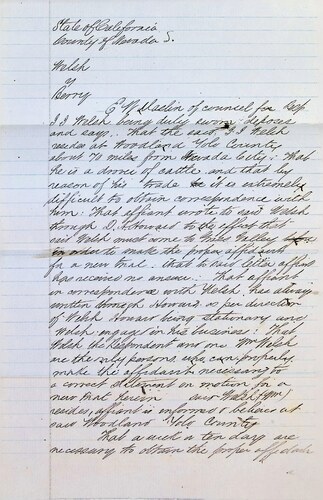 State of California
County of Nevada S.
Welsh
v
Berry
E W Maslin of councel for Resp
J J Welsh being duly sworn deposes
and says. That the said J J Welsh
resides at Woodland Yolo County
about 70 miles from Nevada City: That
he is a drover of cattle and that by
reason of his trade it is extremely
difficult to obtain correspondence with
him: That affiant wrote to said Welsh
through D. Howard to the effect that
said Welsh must come to Grass Valley
in order to make the proper affidavit
for a new trial. That to this letter affiant
has received no answer. That affiant
in correspondence with Welsh, has always
written through Howard as per direction
of Welsh Howard being stationary and
Welsh engage in his business: That
Welsh the Respondent and one Wm Welsh
are the only persons who can properly
made the affidavit necessary to
a correct statement on motion for a
new trial herein and Welsh (Wm)
resides, affiant is informed & believes at
said Woodland Yolo County
That a week or ten days are
necessary to obtain the proper affidavits